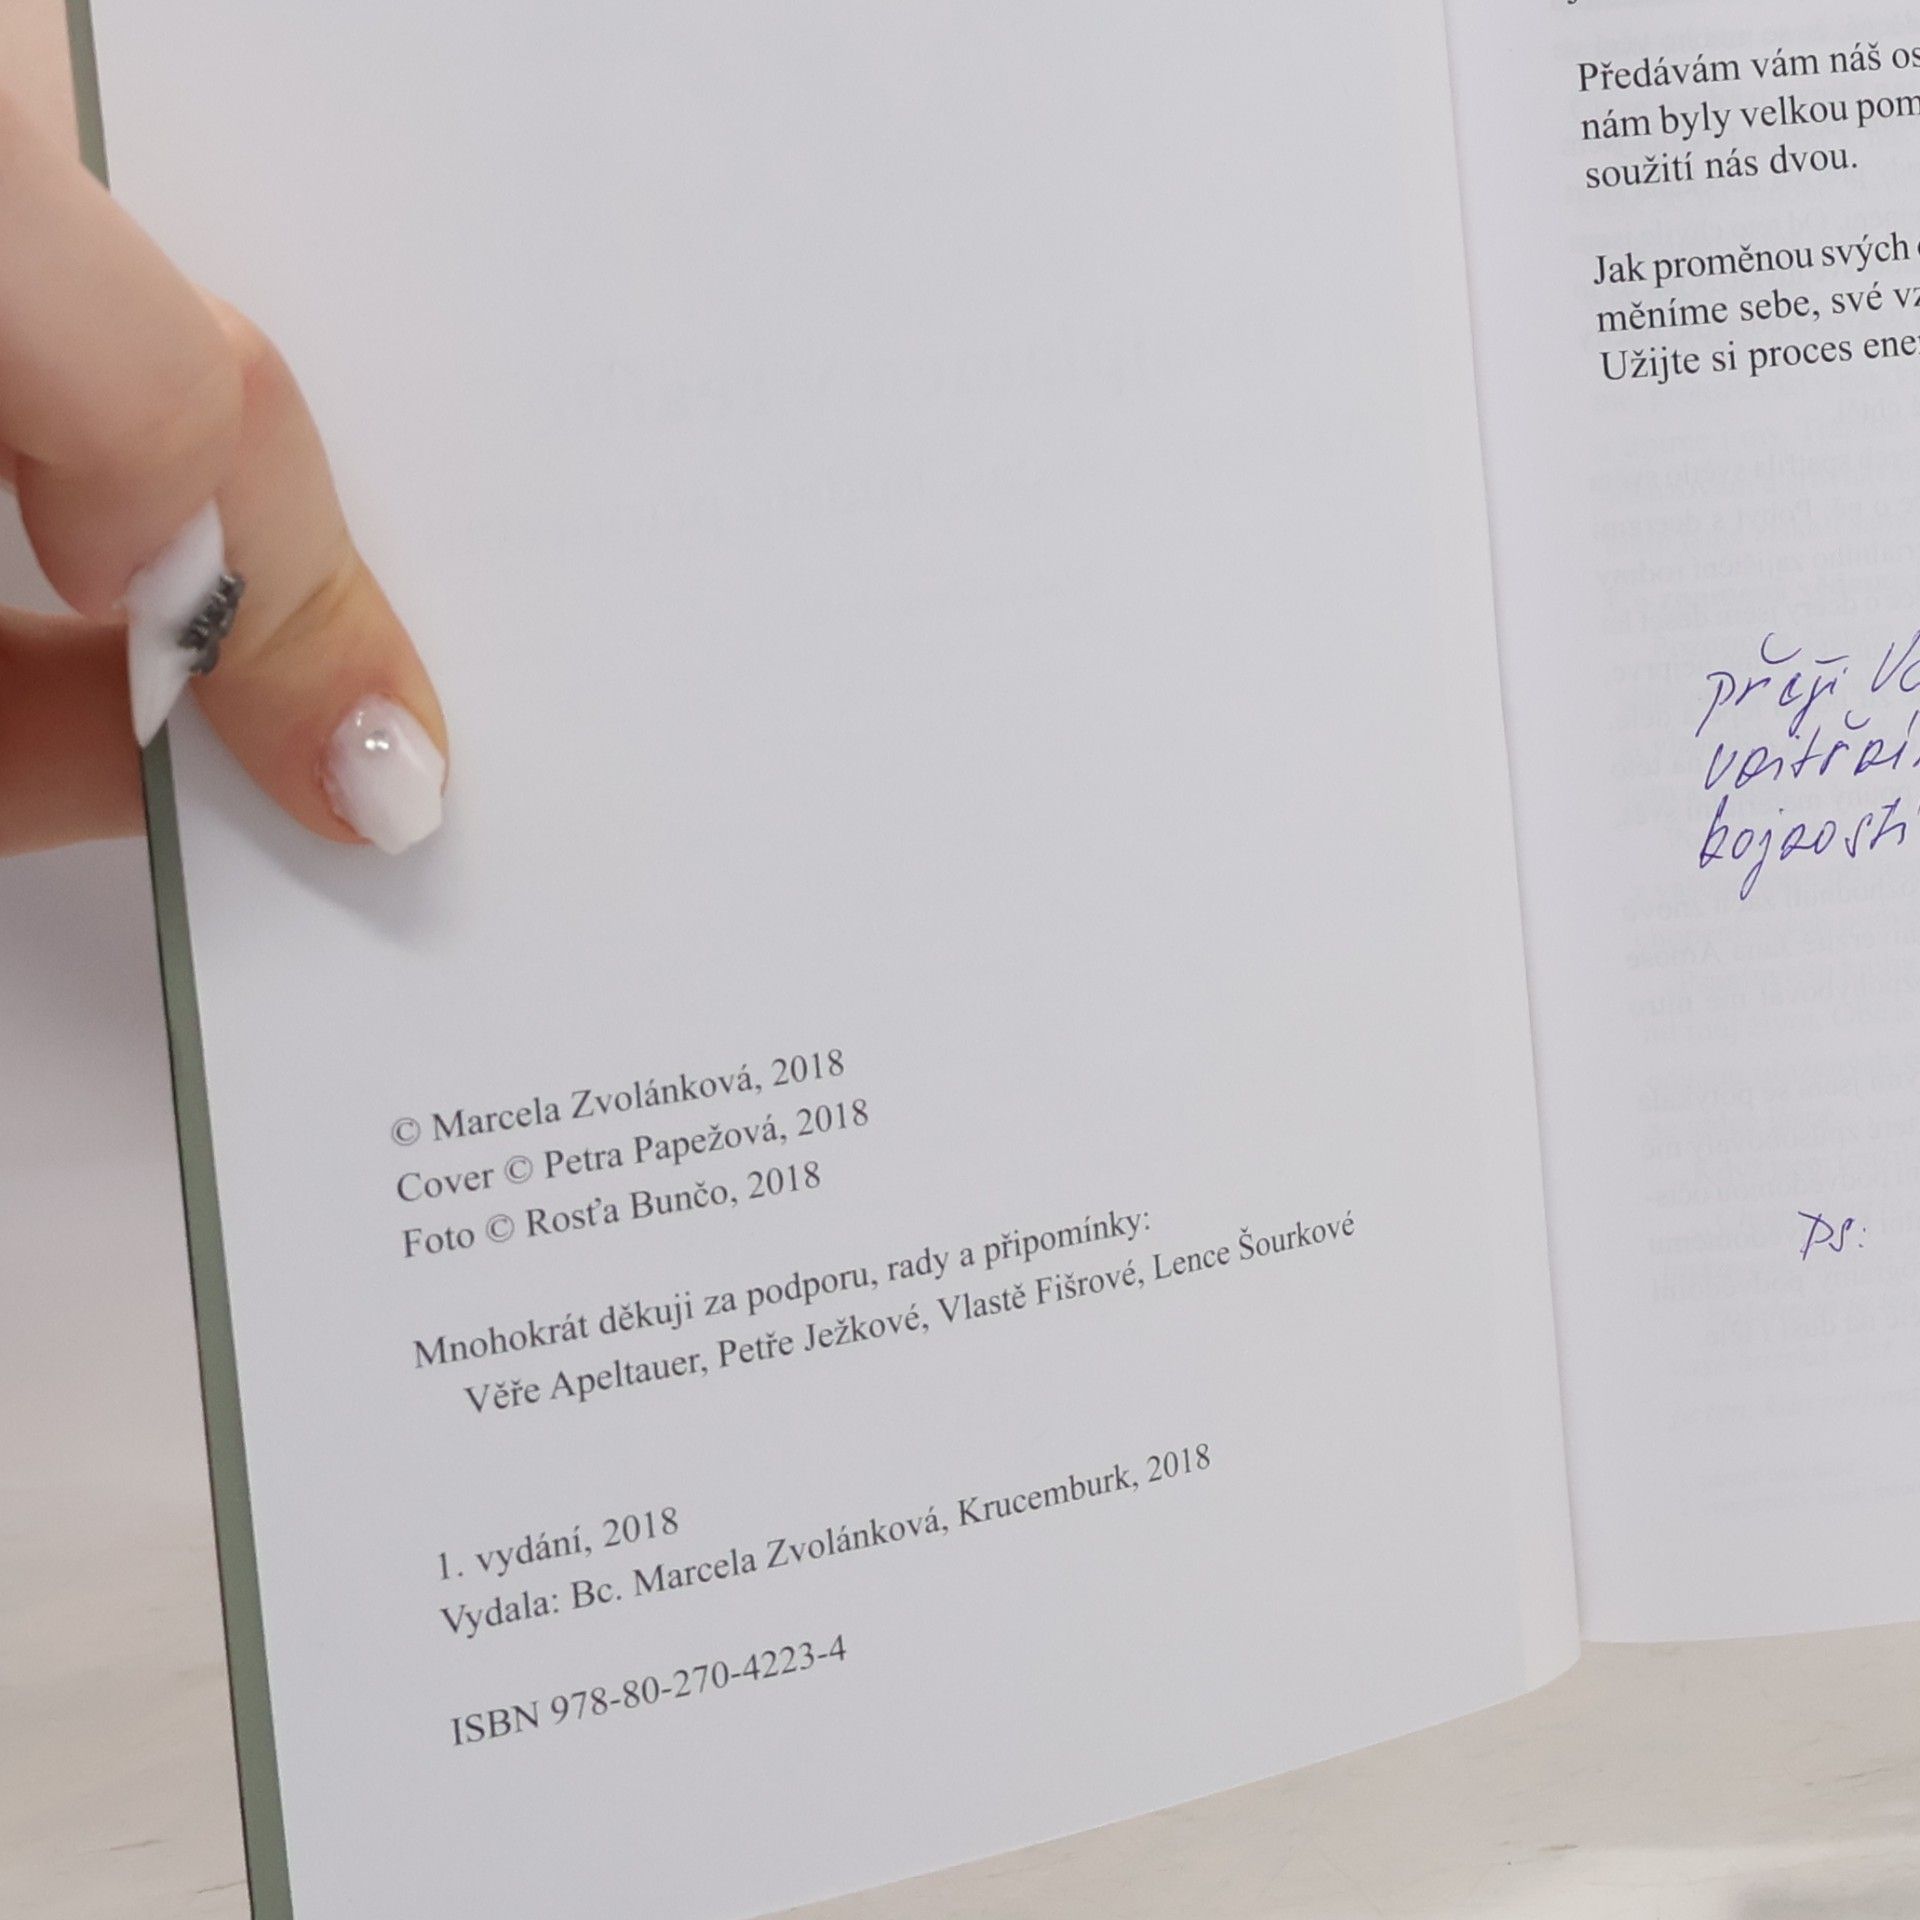 © Marcela Zvolánková, 2018
Cover © Petra Papežová, 2018
Foto © Rosťa Bunčo, 2018
Mnohokrát děkuji za podporu, rady a připomínky:
Věře Apeltauer, Petře Ježkové, Vlastě Fišrové, Lence Šourkové
1. vydání, 2018
Vydala: Bc. Marcela Zvolánková, Krucemburk, 2018
ISBN 978-80-270-4223-4
Předávám vám náš
nám byly velkou
soužití nás dvou.
Jak proměnou svých
měníme sebe, své
Užijte si proces
přeji
PS: